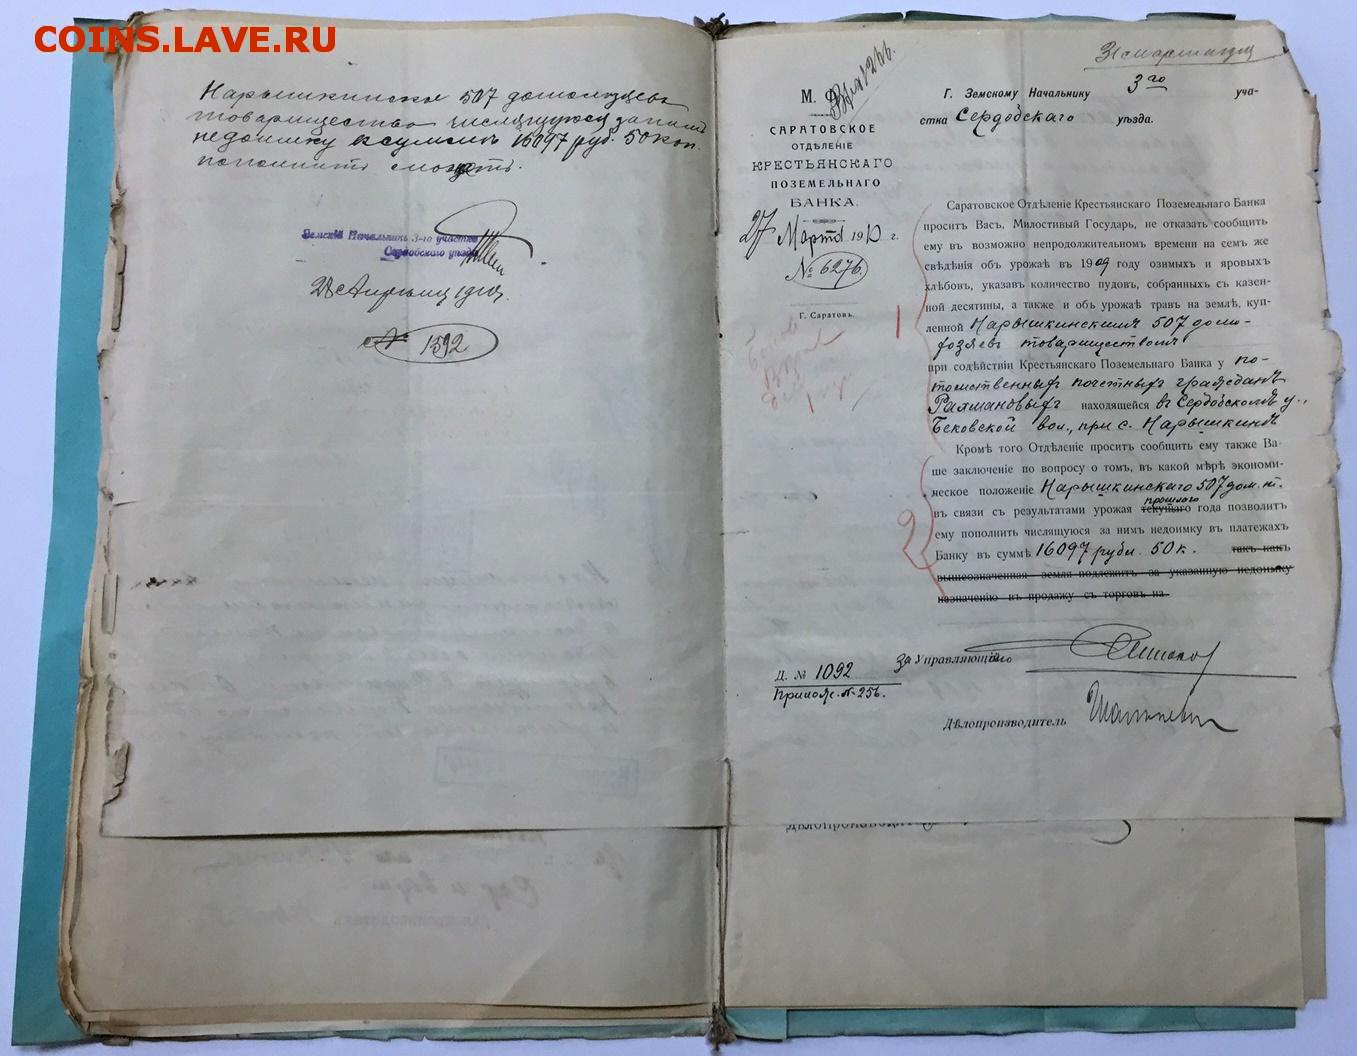 COINS.LAVE.RU
Нарышкинское 507 домохозяевъ
товарищество числящуюся за нимъ
недоимку въ суммѣ 16097 руб. 50 коп.
пополнить сможетъ.
Земскій Начальникъ 3-го участка
Сердобскаго уѣзда
28 Апрѣля 1910 г.
№ 1592
М. Ф.
САРАТОВСКОЕ
ОТДѢЛЕНІЕ
КРЕСТЬЯНСКАГО
ПОЗЕМЕЛЬНАГО
БАНКА.
27 Марта 1910 г.
№ 6276.
Г. Саратовъ.
31 марта
Г. Земскому Начальнику 3го уча-
стка Сердобскаго уѣзда.
1
Саратовское Отдѣленіе Крестьянскаго Поземельнаго Банка
проситъ Васъ, Милостивый Государь, не отказать сообщить
ему въ возможно непродолжительномъ времени на семъ же
свѣдѣнія объ урожаѣ въ 1909 году озимыхъ и яровыхъ
хлѣбовъ, указавъ количество пудовъ, собранныхъ съ казен-
ной десятины, а также и объ урожаѣ травъ на землѣ, куп-
ленной Нарышкинскимъ 507 домо-
хозяевъ товариществомъ
при содѣйствіи Крестьянскаго Поземельнаго Банка у по-
томственныхъ почетныхъ гражданъ
Рахмановыхъ находящейся въ Сердобскомъ у.,
Бековской вол., при с. Нарышкинѣ
2
Кромѣ того Отдѣленіе проситъ сообщить ему также Ва-
ше заключеніе по вопросу о томъ, въ какой мѣрѣ экономи-
ческое положеніе Нарышкинскаго 507 дом. т.
прошлаго
въ связи съ результатами урожая текущаго года позволитъ
ему пополнить числящуюся за нимъ недоимку въ платежахъ
Банку въ суммѣ 16097 рубл. 50 к. такъ какъ
вышеозначенная земля подлежитъ за указанную недоимку
назначенію въ продажу съ торговъ на
За Управляющаго
Д. № 1092
Прилож. № 256.
Дѣлопроизводитель